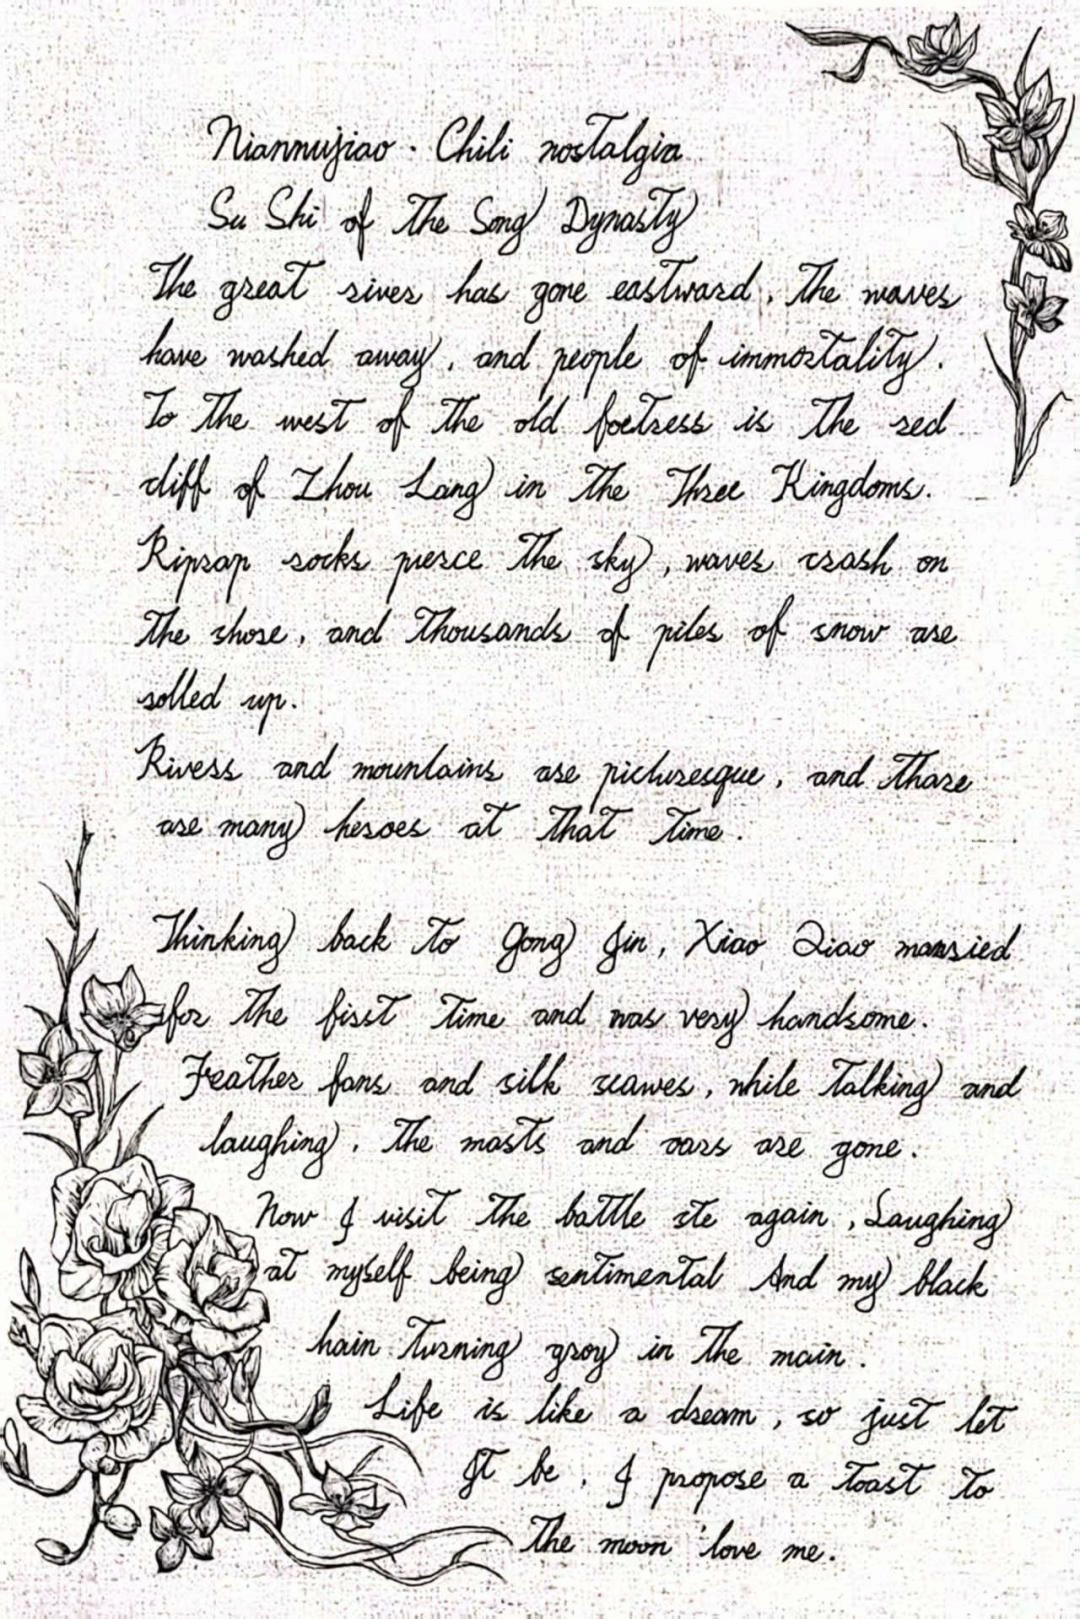 Niannujiao · Chili nostalgia
Su Shi of the Song Dynasty
The great river has gone eastward, the waves
have washed away, and people of immortality.
To the west of the old foetress is the red
cliff of Zhou Lang in the Three Kingdoms.
Riprap rocks pierce the sky, waves crash on
the shore, and thousands of piles of snow are
rolled up.
Rivers and mountains are picturesque, and thare
are many heroes at that time.
Thinking back to Gong Jin, Xiao Qiao married
for the first time and was very handsome.
Feather fans and silk scawes, while talking and
laughing, the masts and oars are gone.
Now I visit the battle ste again, Laughing
at myself being sentimental And my black
hain turning groy in the main.
Life is like a dream, so just let
It be, I propose a toast to
the moon 'love me.